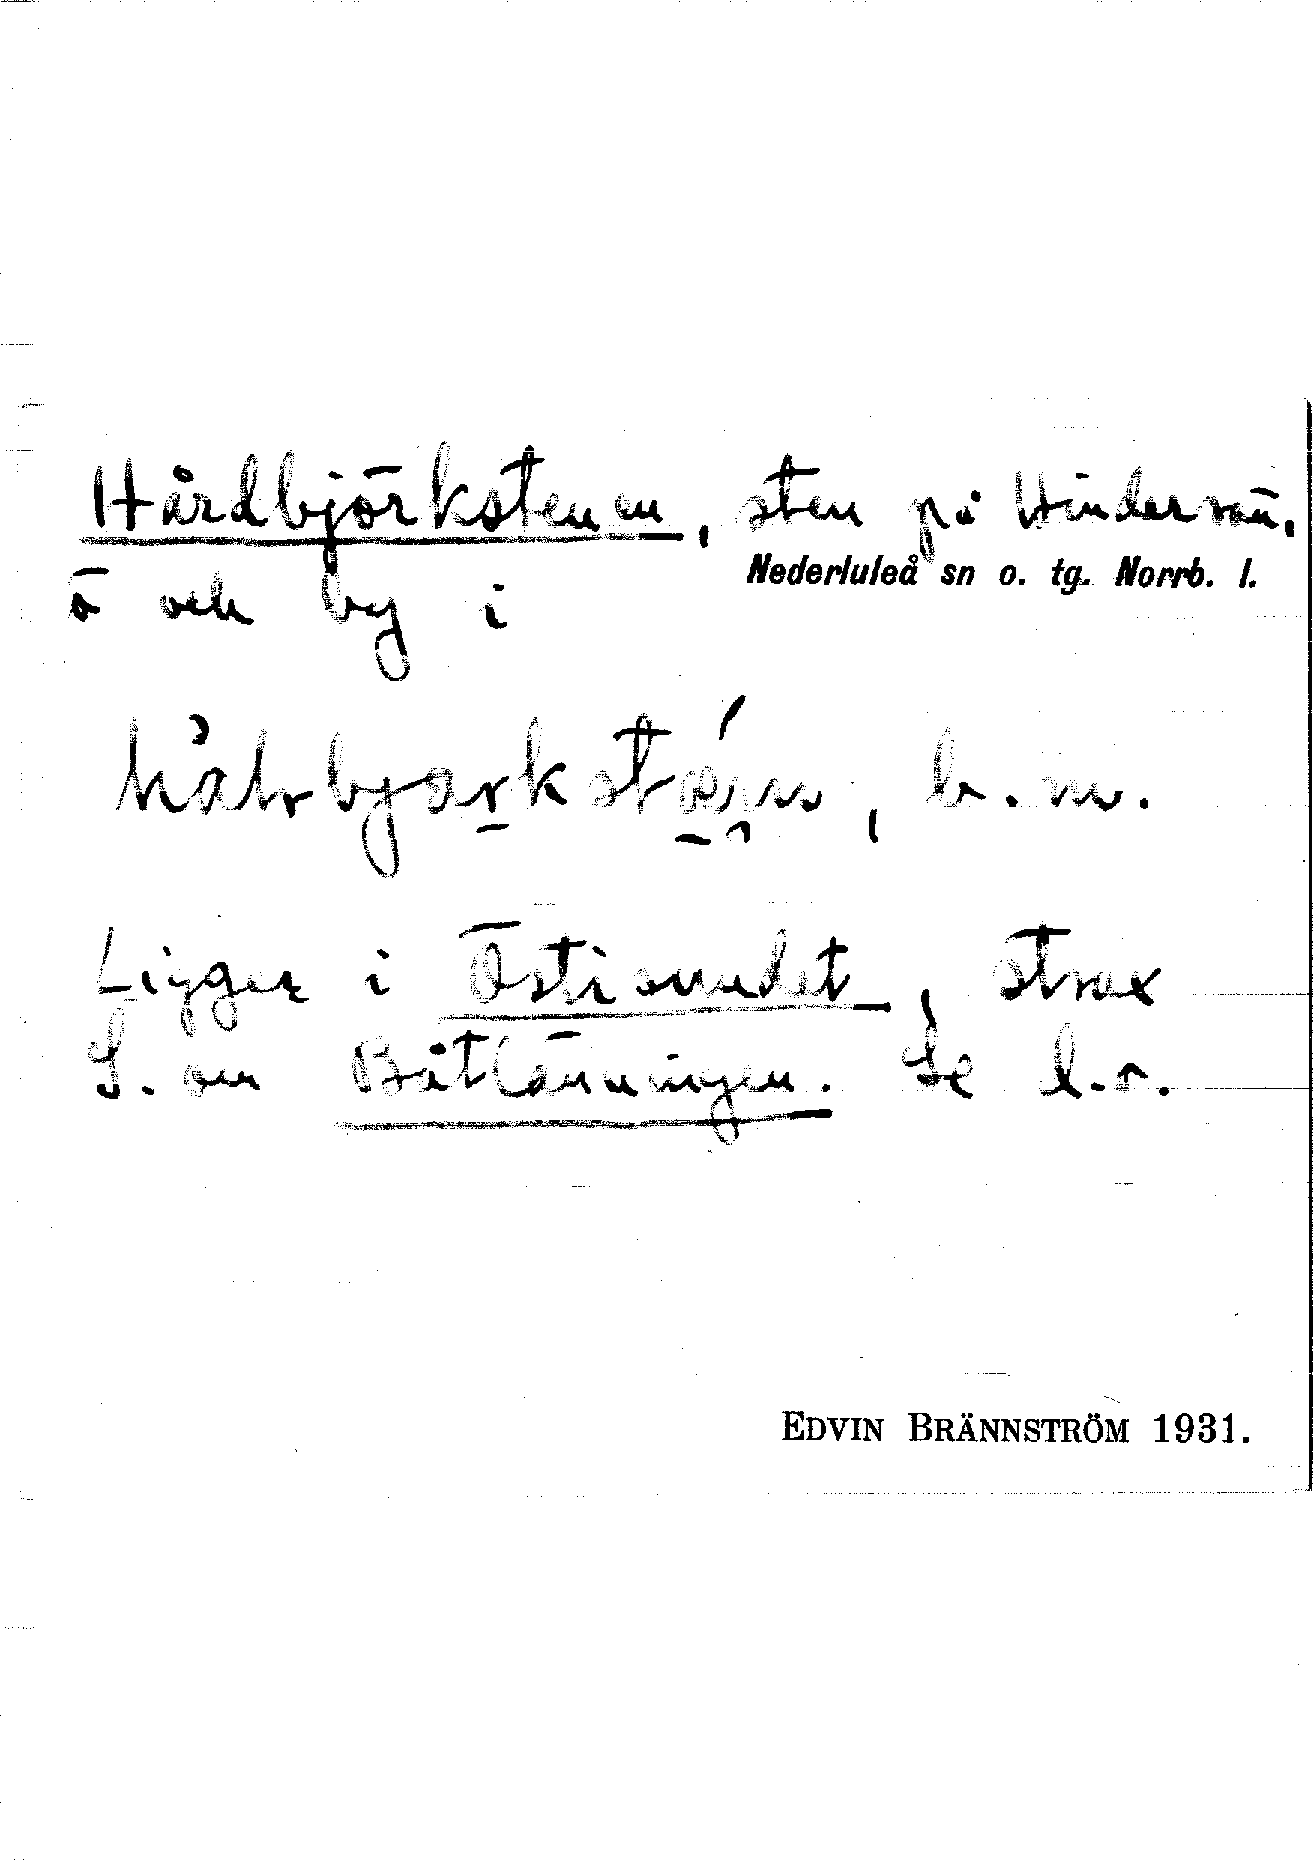 Hårdbjörkstenen, sten på Hindersön,
ö och by i Nederluleå sn o. tg. Norrb. l.
b. m.
Ligger i Östisundet, strax
S. om Båtlänningen. Se d. o.
EDVIN BRÄNNSTRÖM 1931.